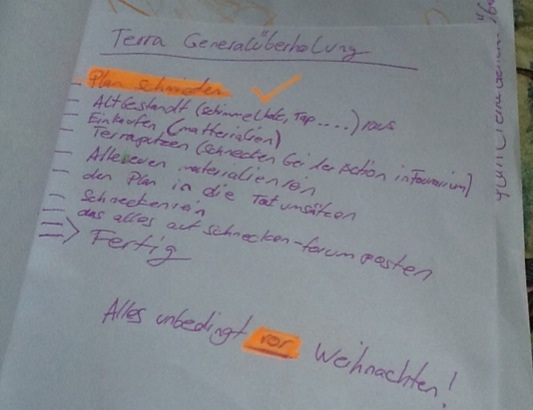 Terra Generalüberholung
Plan schmieden ✓
- Altbestandt (schimmelholz, Tap.....) raus
- Einkaufen (matterialien)
- Terraputzen (schnecken bei der action in Faunarium)
- Alle neuen materialien rein
- den Plan in die Tat umsätzen
- Schnecken rein
- das alles auf schnecken-forum posten
=> Fertig
Alles unbedingt vor Weihnachten!